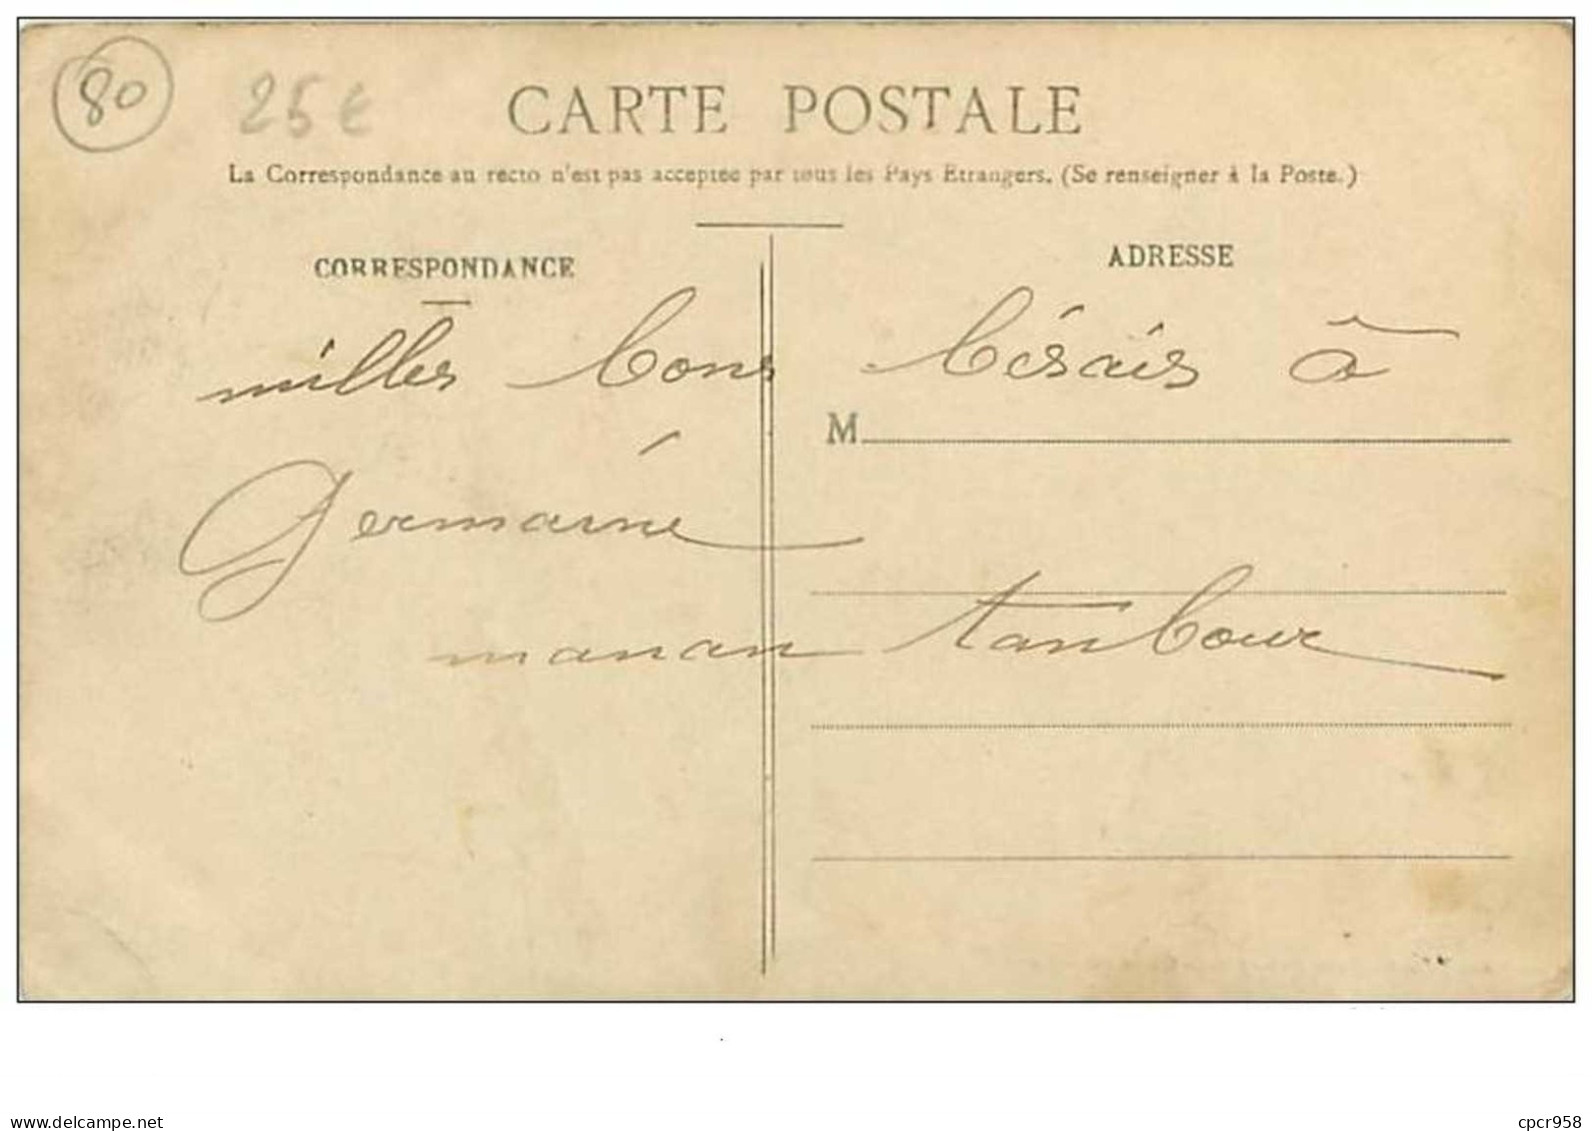 80 25€
CARTE POSTALE
La Correspondance au recto n'est pas acceptée par tous les Pays Etrangers. (Se renseigner à la Poste.)
CORRESPONDANCE
ADRESSE
milles bons bésais à
M
Germaine
manan tambour
www.delcampe.net
cpcr958